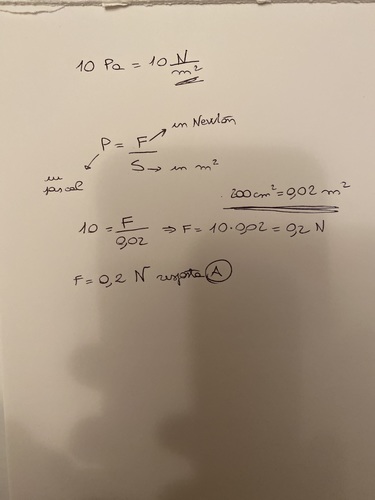 10 Pa = 10 N/m²
P = F/S
in Newton
in m²
in pascal
200 cm² = 0,02 m²
10 = F/0,02 ⇒ F = 10·0,02 = 0,2 N
F = 0,2 N risposta A